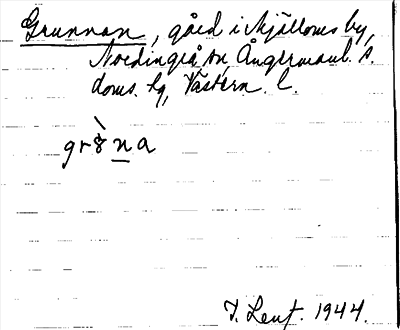 Grunnan, gård i Mjälloms by,
Nordingrå sn, Ångermanl. s.
doms. hg, Västern. l.
gr8̀n̲a
T. Lenf. 1944.